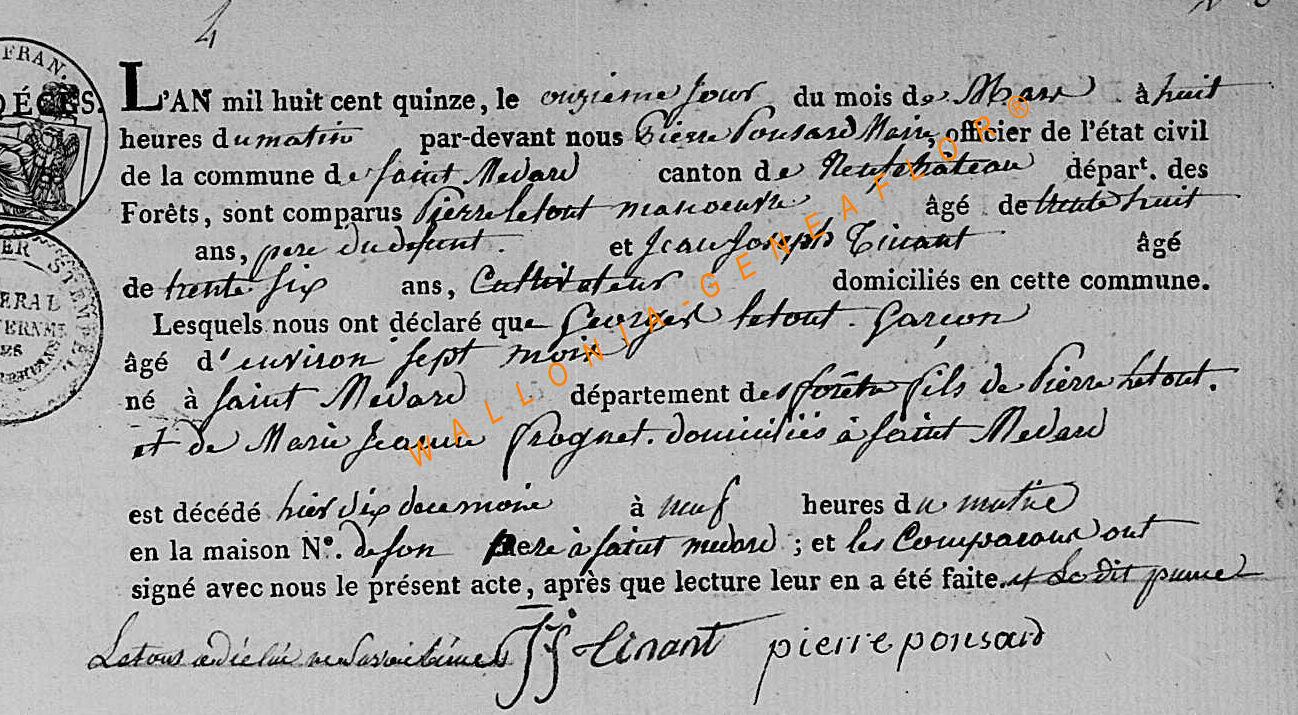 4
FRAN.
DÉCÈS.
L'AN mil huit cent quinze, le onzieme jour du mois de Mars à huit
heures du matin par-devant nous Pierre Ponsard Maire, officier de l'état civil
de la commune de saint Medard canton de Neufchateau départ. des
Forêts, sont comparus Pierre letout manoeuvre âgé de trente huit
ans, pere du defunt. et Jean Joseph Tinant âgé
de trente six ans, Cultivateur domiciliés en cette commune.
Lesquels nous ont déclaré que Georges letout. Garçon
âgé d'environ sept mois
né à saint Medard département des forêts fils de Pierre letout.
et de Marie Jeanne Prognet. domiciliés à saint Medard
est décédé hier dix du ce mois à neuf heures du matin
en la maison N°. de son pere à saint medard ; et les Comparans ont
signé avec nous le présent acte, après que lecture leur en a été faite. et Le dit pierre
Letout a déclaré ne savoir signer JJ tinant pierre ponsard
STEMPEL
WALLONIA-GENEAFLOR®